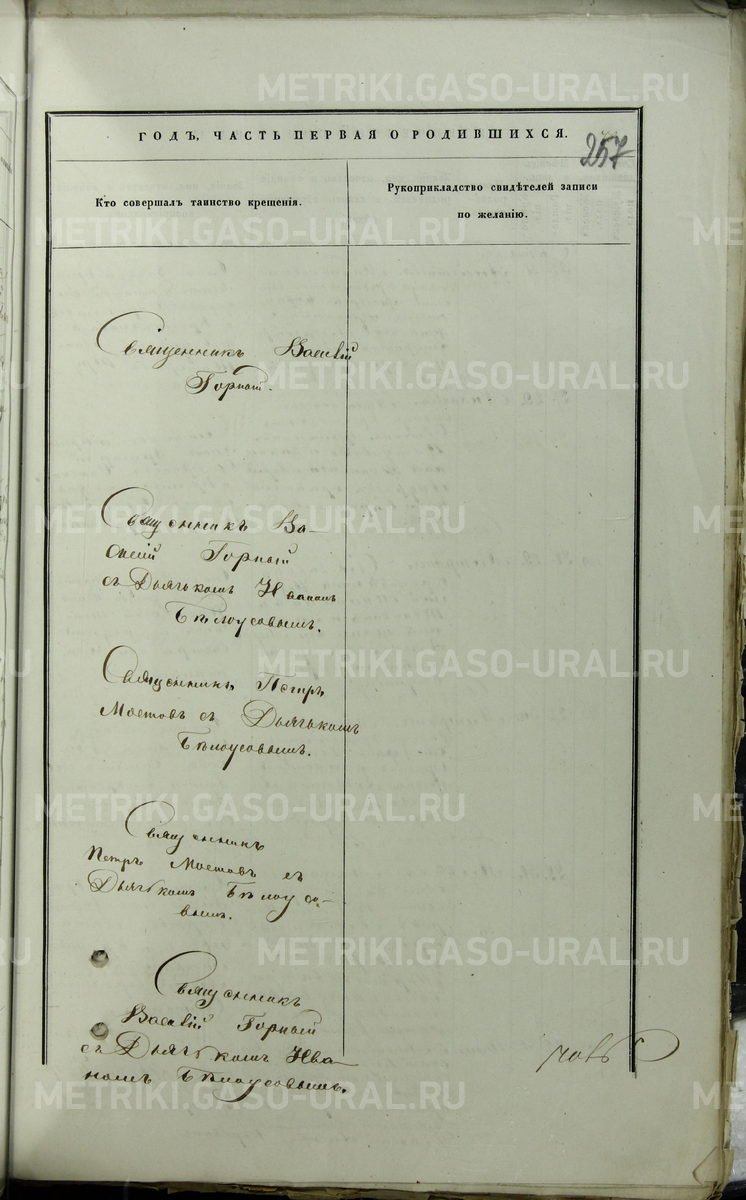 METRIKI.GASO-URAL.RU
ГОДЪ, ЧАСТЬ ПЕРВАЯ О РОДИВШИХСЯ.
257
Кто совершалъ таинство крещенія.
Рукоприкладство свидѣтелей записи
по желанію.
Священникъ Василій
Горный.
Священникъ Ва-
силій Горный
съ Дьячькомъ Иваномъ
Бѣлоусовымъ.
Священникъ Петръ
Мостовъ съ Дьячькомъ
Бѣлоусовымъ.
Священникъ
Петръ Мостовъ съ
Дьячькомъ Бѣлоусо-
вымъ.
Священникъ
Василій Горный
съ Дьячькомъ Ива-
номъ Бѣлоусовымъ.